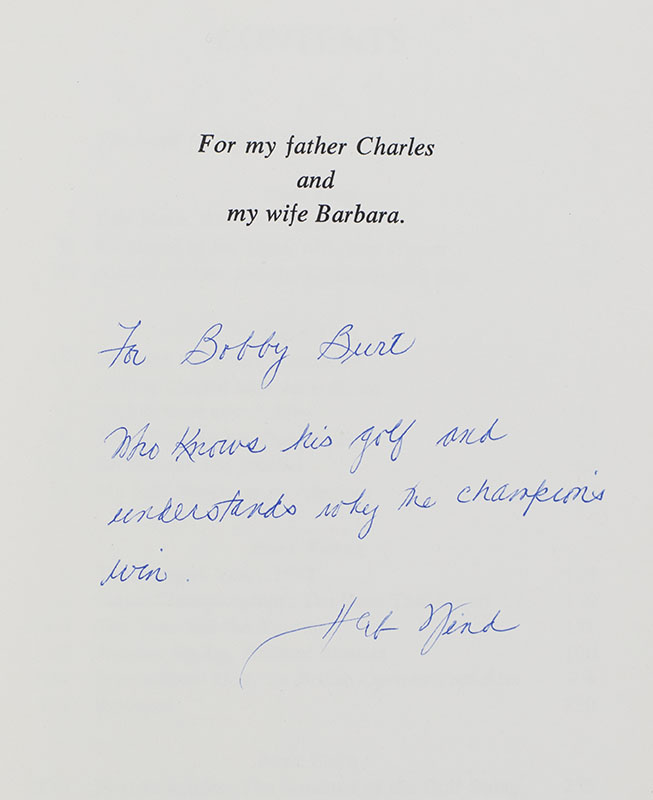 For my father Charles
and
my wife Barbara.
For Bobby Burt
Who Knows his golf and
understands why the champions
win.
Herb Wind
CONTENTS